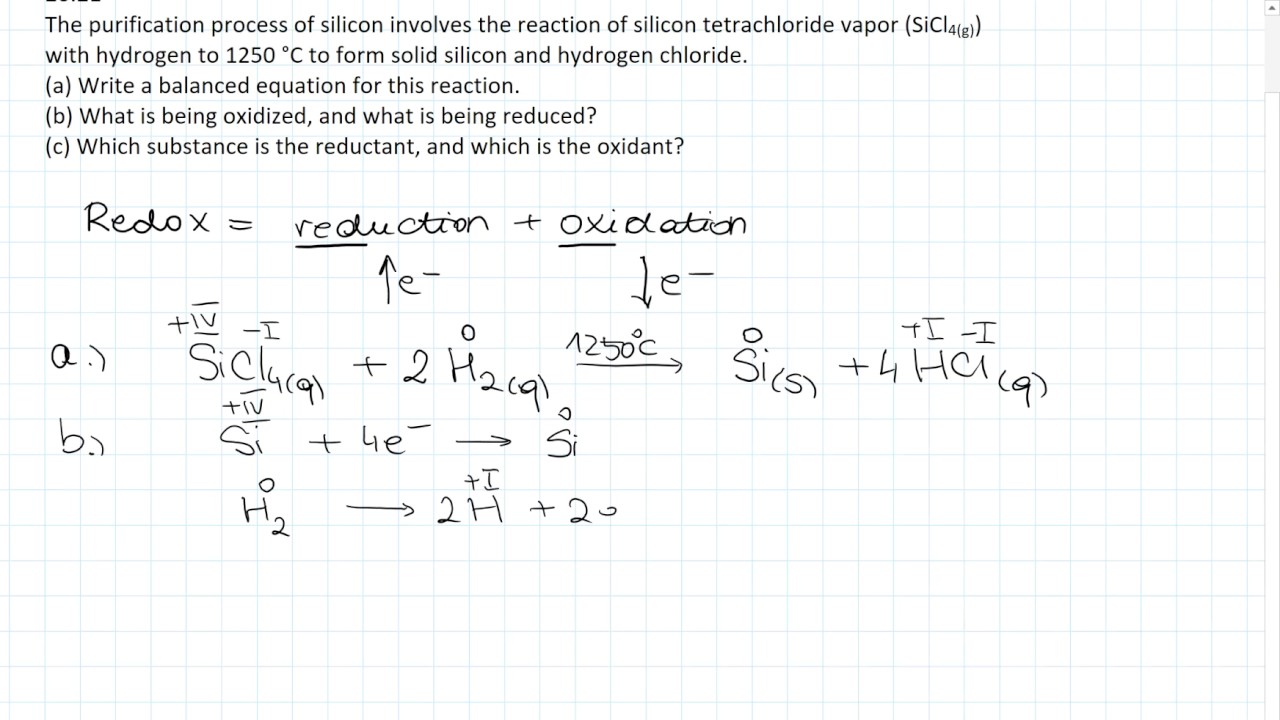 The purification process of silicon involves the reaction of silicon tetrachloride vapor (SiCl4(g))
with hydrogen to 1250 °C to form solid silicon and hydrogen chloride.
(a) Write a balanced equation for this reaction.
(b) What is being oxidized, and what is being reduced?
(c) Which substance is the reductant, and which is the oxidant?
Redox = reduction + oxidation
↑e⁻ ↓e⁻
+IV -I 0 1250°C 0 +I -I
a.) SiCl4(g) + 2 H2(g) → Si(s) + 4 HCl(g)
+IV 0
b.) Si + 4e⁻ → Si
0 +I
H2 → 2H + 2